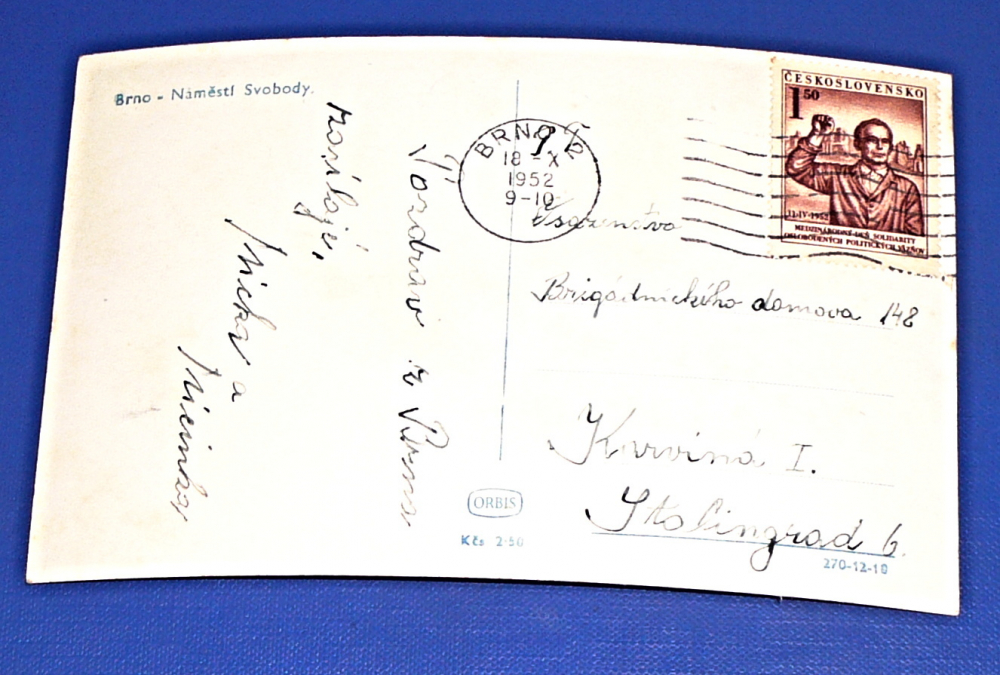 Brno - Náměstí Svobody.
Pozdrav z Brna
zasílají,
a
BRNO 2
18 - X
1952
9-10
ČESKOSLOVENSKO
1 50
11-IV-1952
MEDZINÁRODNÝ DEŇ SOLIDARITY
OSLOBODENÝCH POLITICKÝCH VÄZŇOV
Osazenstvo
Brigádnického domova 148
Karviná I.
Stalingrad 6.
ORBIS
Kčs 2·50
270-12-10